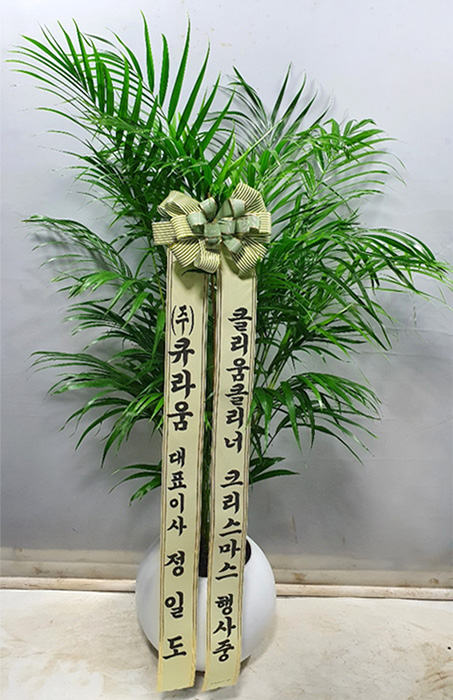 (주)큐라움 대표이사 정일도
클리움클리너 크리스마스 행사중